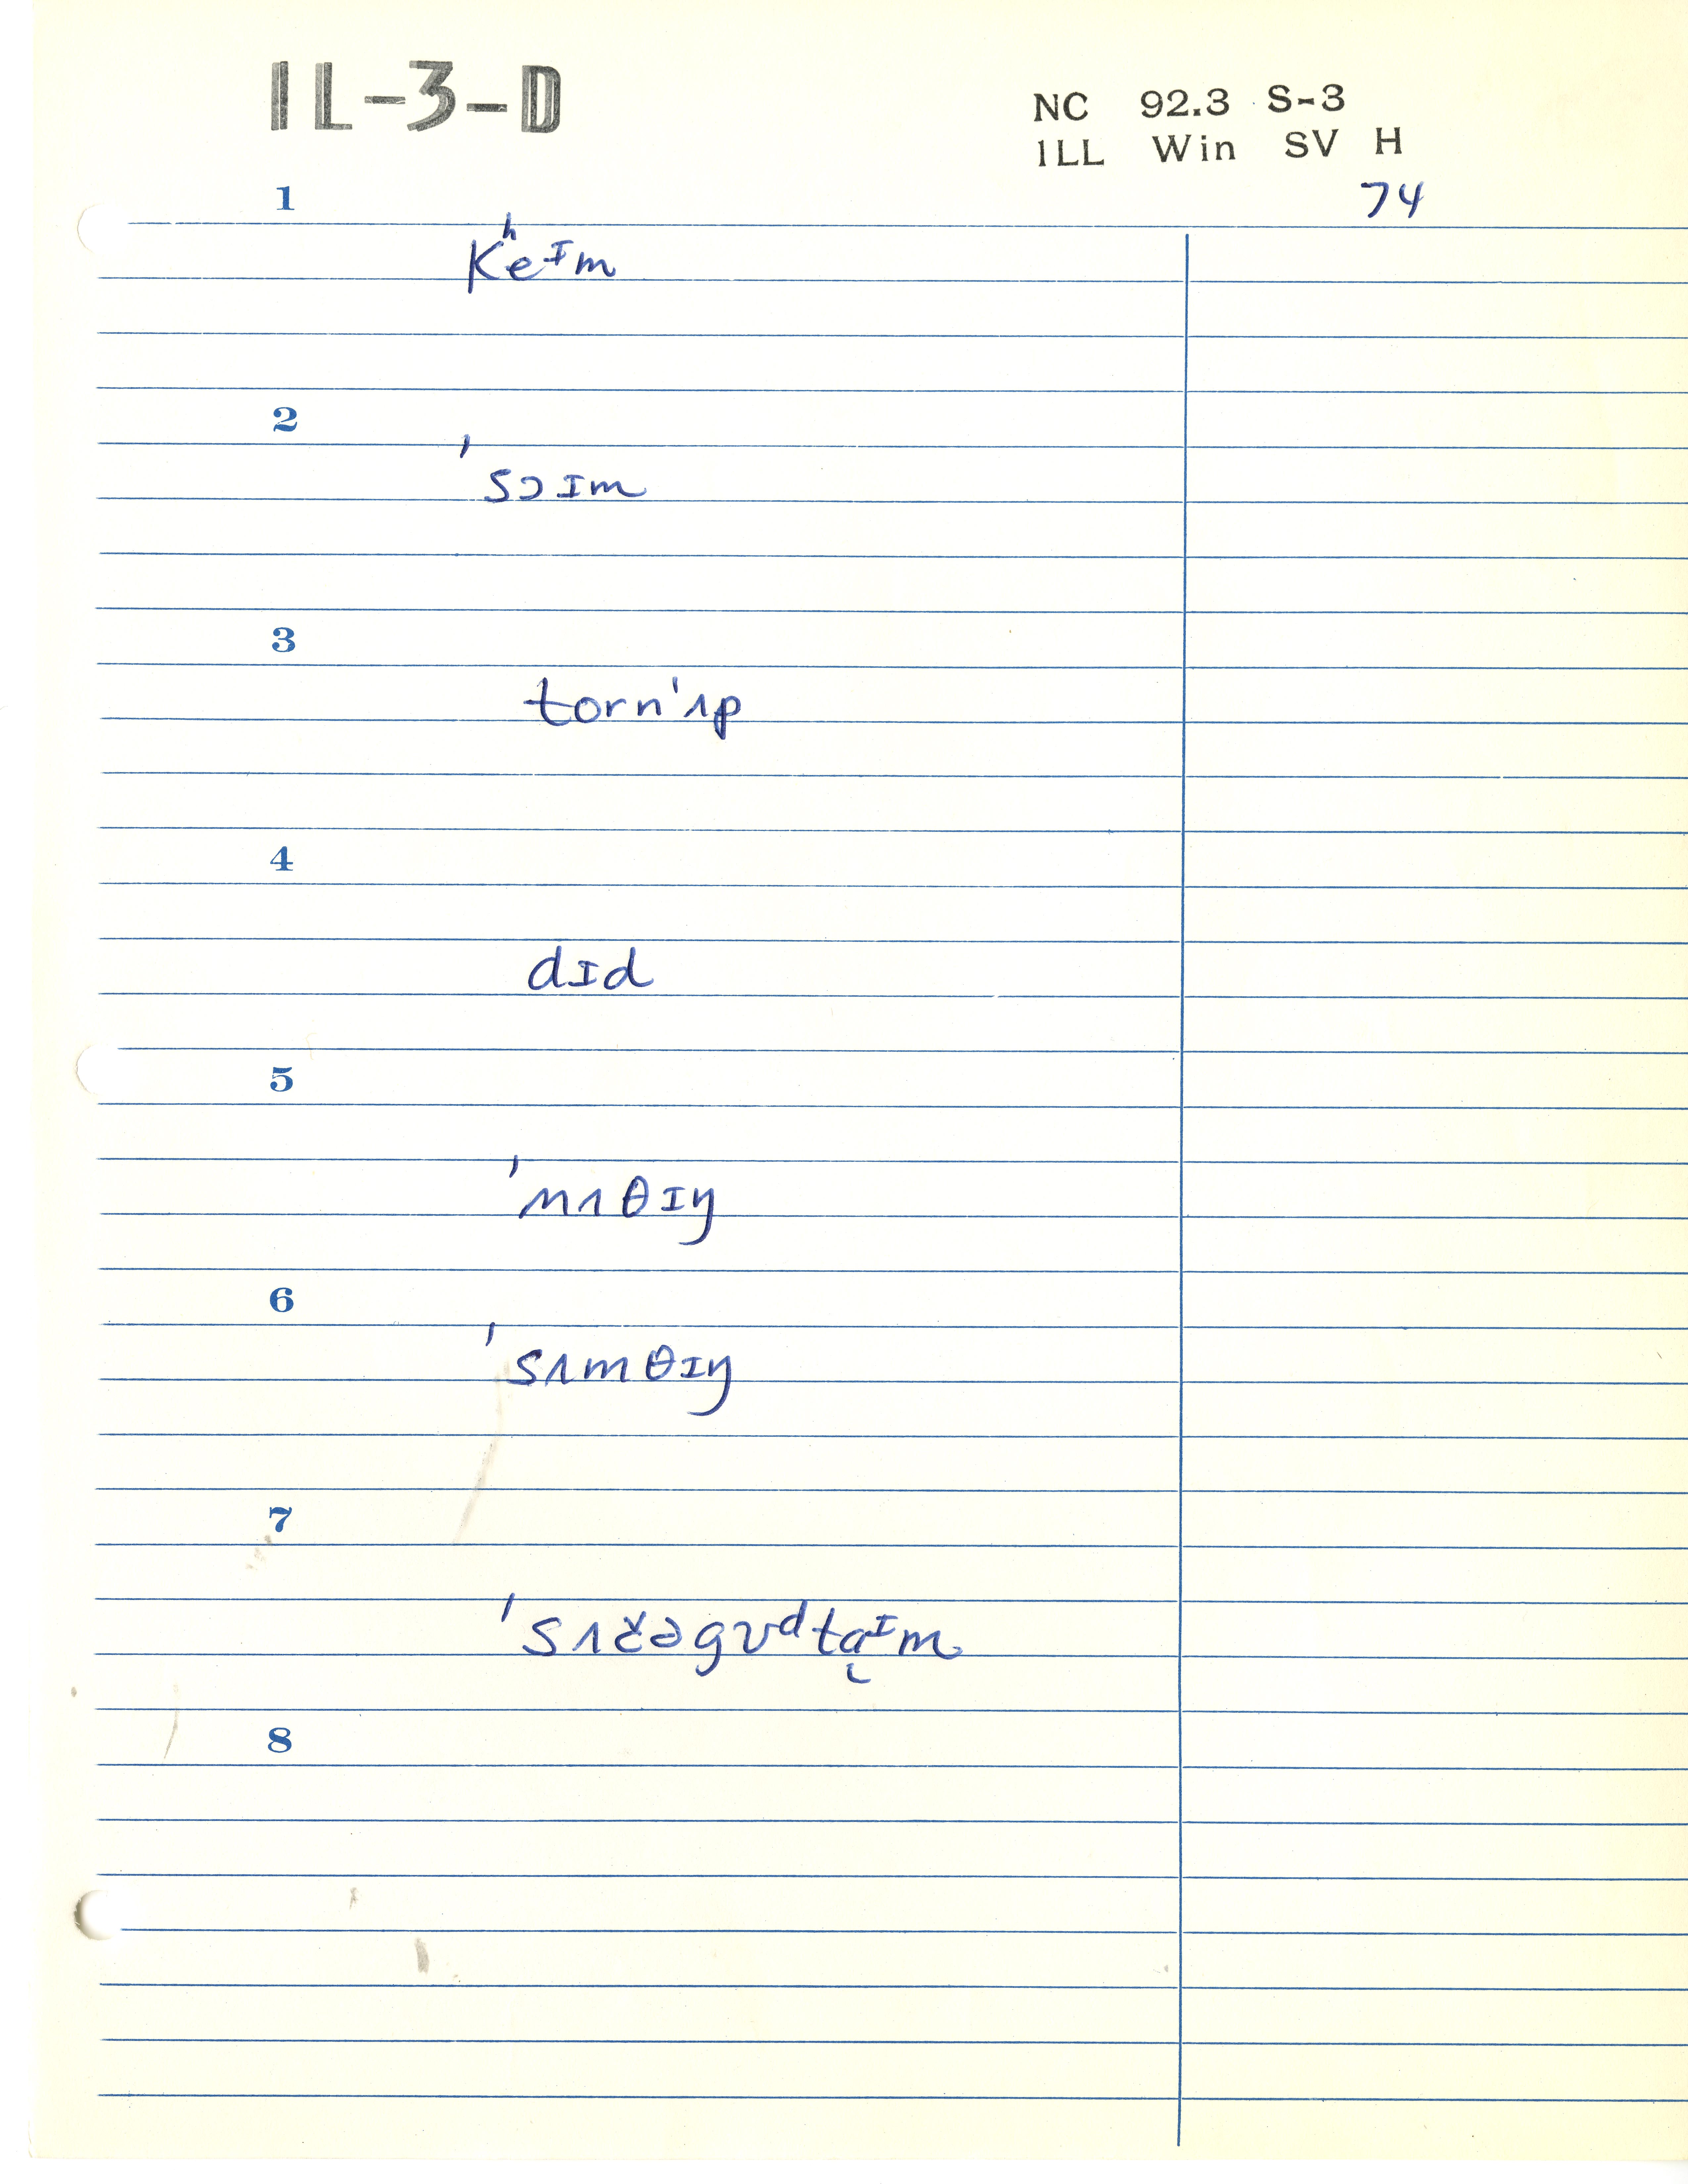 IL-3-D
NC 92.3 S-3
ILL Win SV H
74
1
kʰeᴵm
2
ˈsɔɪm
3
tornˈʌp
4
dɪd
5
ˈnʌθɪŋ
6
ˈsʌmθɪŋ
7
ˈsʌčəgʊᵈtɑ̨ᴵm
8